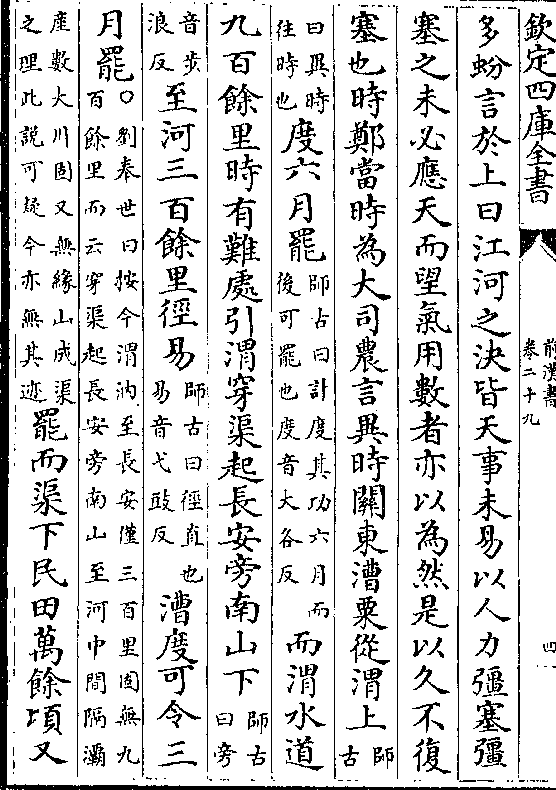 欽定四庫全書
前漢書
卷二十九
四
多蚡言於上曰江河之決皆天事未易以人力彊塞彊
塞之未必應天而望氣用數者亦以為然是以久不復
塞也時鄭當時為大司農言異時關東漕粟從渭上師古
曰異時往時也度六月罷師古曰計度其功六月而後可罷也度音大各反而渭水道
九百餘里時有難處引渭穿渠起長安旁南山下師古曰旁
音步浪反至河三百餘里徑易師古曰徑直也易音弋豉反漕度可令三
月罷○劉奉世曰按今渭汭至長安僅三百里固無九百餘里而云穿渠起長安旁南山至河中間隔灞
産數大川固又無緣山成渠之理此說可疑今亦無其迹罷而渠下民田萬餘頃又